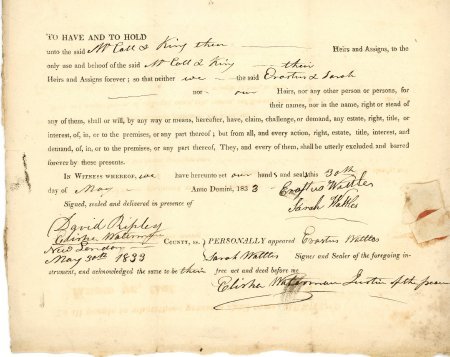 TO HAVE AND TO HOLD
unto the said McCall & King their Heirs and Assigns, to the
only use and behoof of the said McCall & King - their
Heirs and Assigns forever; so that neither we - the said Erastus & Sarah
nor - our Heirs, nor any other person or persons, for
their names, nor in the name, right or stead of
any of them, shall or will, by any way or means, hereafter, have, claim, challenge, or demand, any estate, right, title, or
interest, of, in, or to the premises, or any part thereof; but from all, and every action, right, estate, title, interest, and
demand, of, in, or to the premises, or any part thereof, They, and every of them, shall be utterly excluded and barred
forever by these presents.
In Witness whereof, we have hereunto set our hands and seals this 30th
day of May - Anno Domini, 1833 - Erastus Wattles
Signed, sealed and delivered in presence of Sarah Wattles
David Ripley
Elisha Waterman
New London County, ss. PERSONALLY appeared Erastus Wattles
May 30th 1833 Sarah Wattles Signer and Sealer of the foregoing in-
strument, and acknowledged the same to be their free act and deed before me
Elisha Waterman Justice of the peace